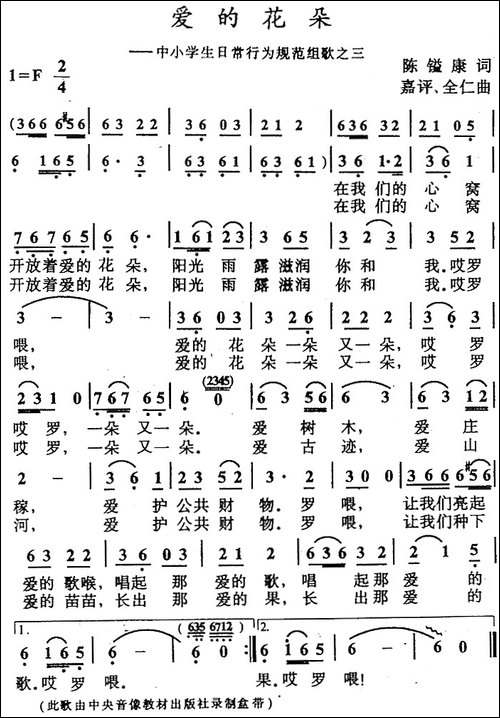 爱的花朵
——中小学生日常行为规范组歌之三
1=F 2/4
陈镒康 词
嘉评、全仁曲
(366 656 | 63 22 | 36 03 | 21 2 | 636 32 | 21 05 |
6 165 | 6· 3 | 63 61 | 63 61) | 36 1·2 | 36 1 |
在我 们的 心 窝
在我 们的 心 窝
767 65 | 6 6· | 161 23 | 3 65 | 3 23 | 6·6 |
开放着爱的 花 朵, 阳光 雨 露 滋润 你和 我.哎罗
开放着爱的 花 朵, 阳光 雨 露 滋润 你和 我.哎罗
3 - | 3 - | 63 03 | 3 26 | 3 03 | 6 3 |
喂, 爱的 花 朵 一朵 又一 朵, 哎 罗
喂, 爱的 花 朵 一朵 又一 朵, 哎 罗
(2345)
231 0 | 767 65 | 6 0 | 6 3 56 | 6 3 | 63 12 |
哎 罗, 一朵 又一 朵. 爱 树 木, 爱 庄
哎 罗, 一朵 又一 朵. 爱 古 迹, 爱 山
2 - | 36 1 | 23 52 | 3· 2 | 30 0 | 366 656 |
稼, 爱 护 公共 财 物. 罗 喂, 让我们亮起
河, 爱 护 公共 财 物. 罗 喂, 让我们种下
63 22 | 36 03 | 21 2 | 636 32 | 21 | 5 |
爱的 歌喉, 唱起 那 爱的 歌, 唱 起那 爱 的
爱的 苗苗, 长出 那 爱的 果, 长 出那 爱 的
1. (635 6712) 2.
6 165 | 6 - | 6 0 :‖ 6 165 | 6 - | 6 - ‖
歌.哎 罗 喂. 果.哎 罗 喂!
(此歌由中央音像教材出版社录制盒带)